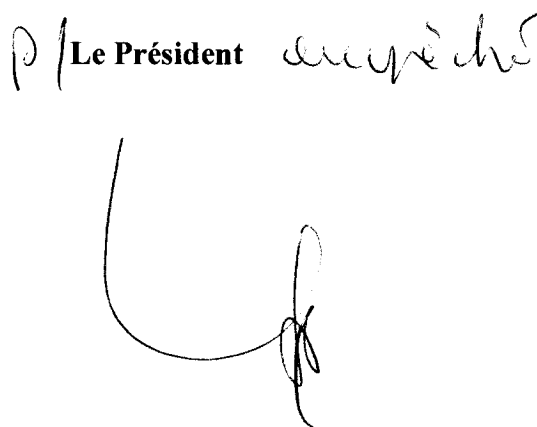 P/ Le Président empêché